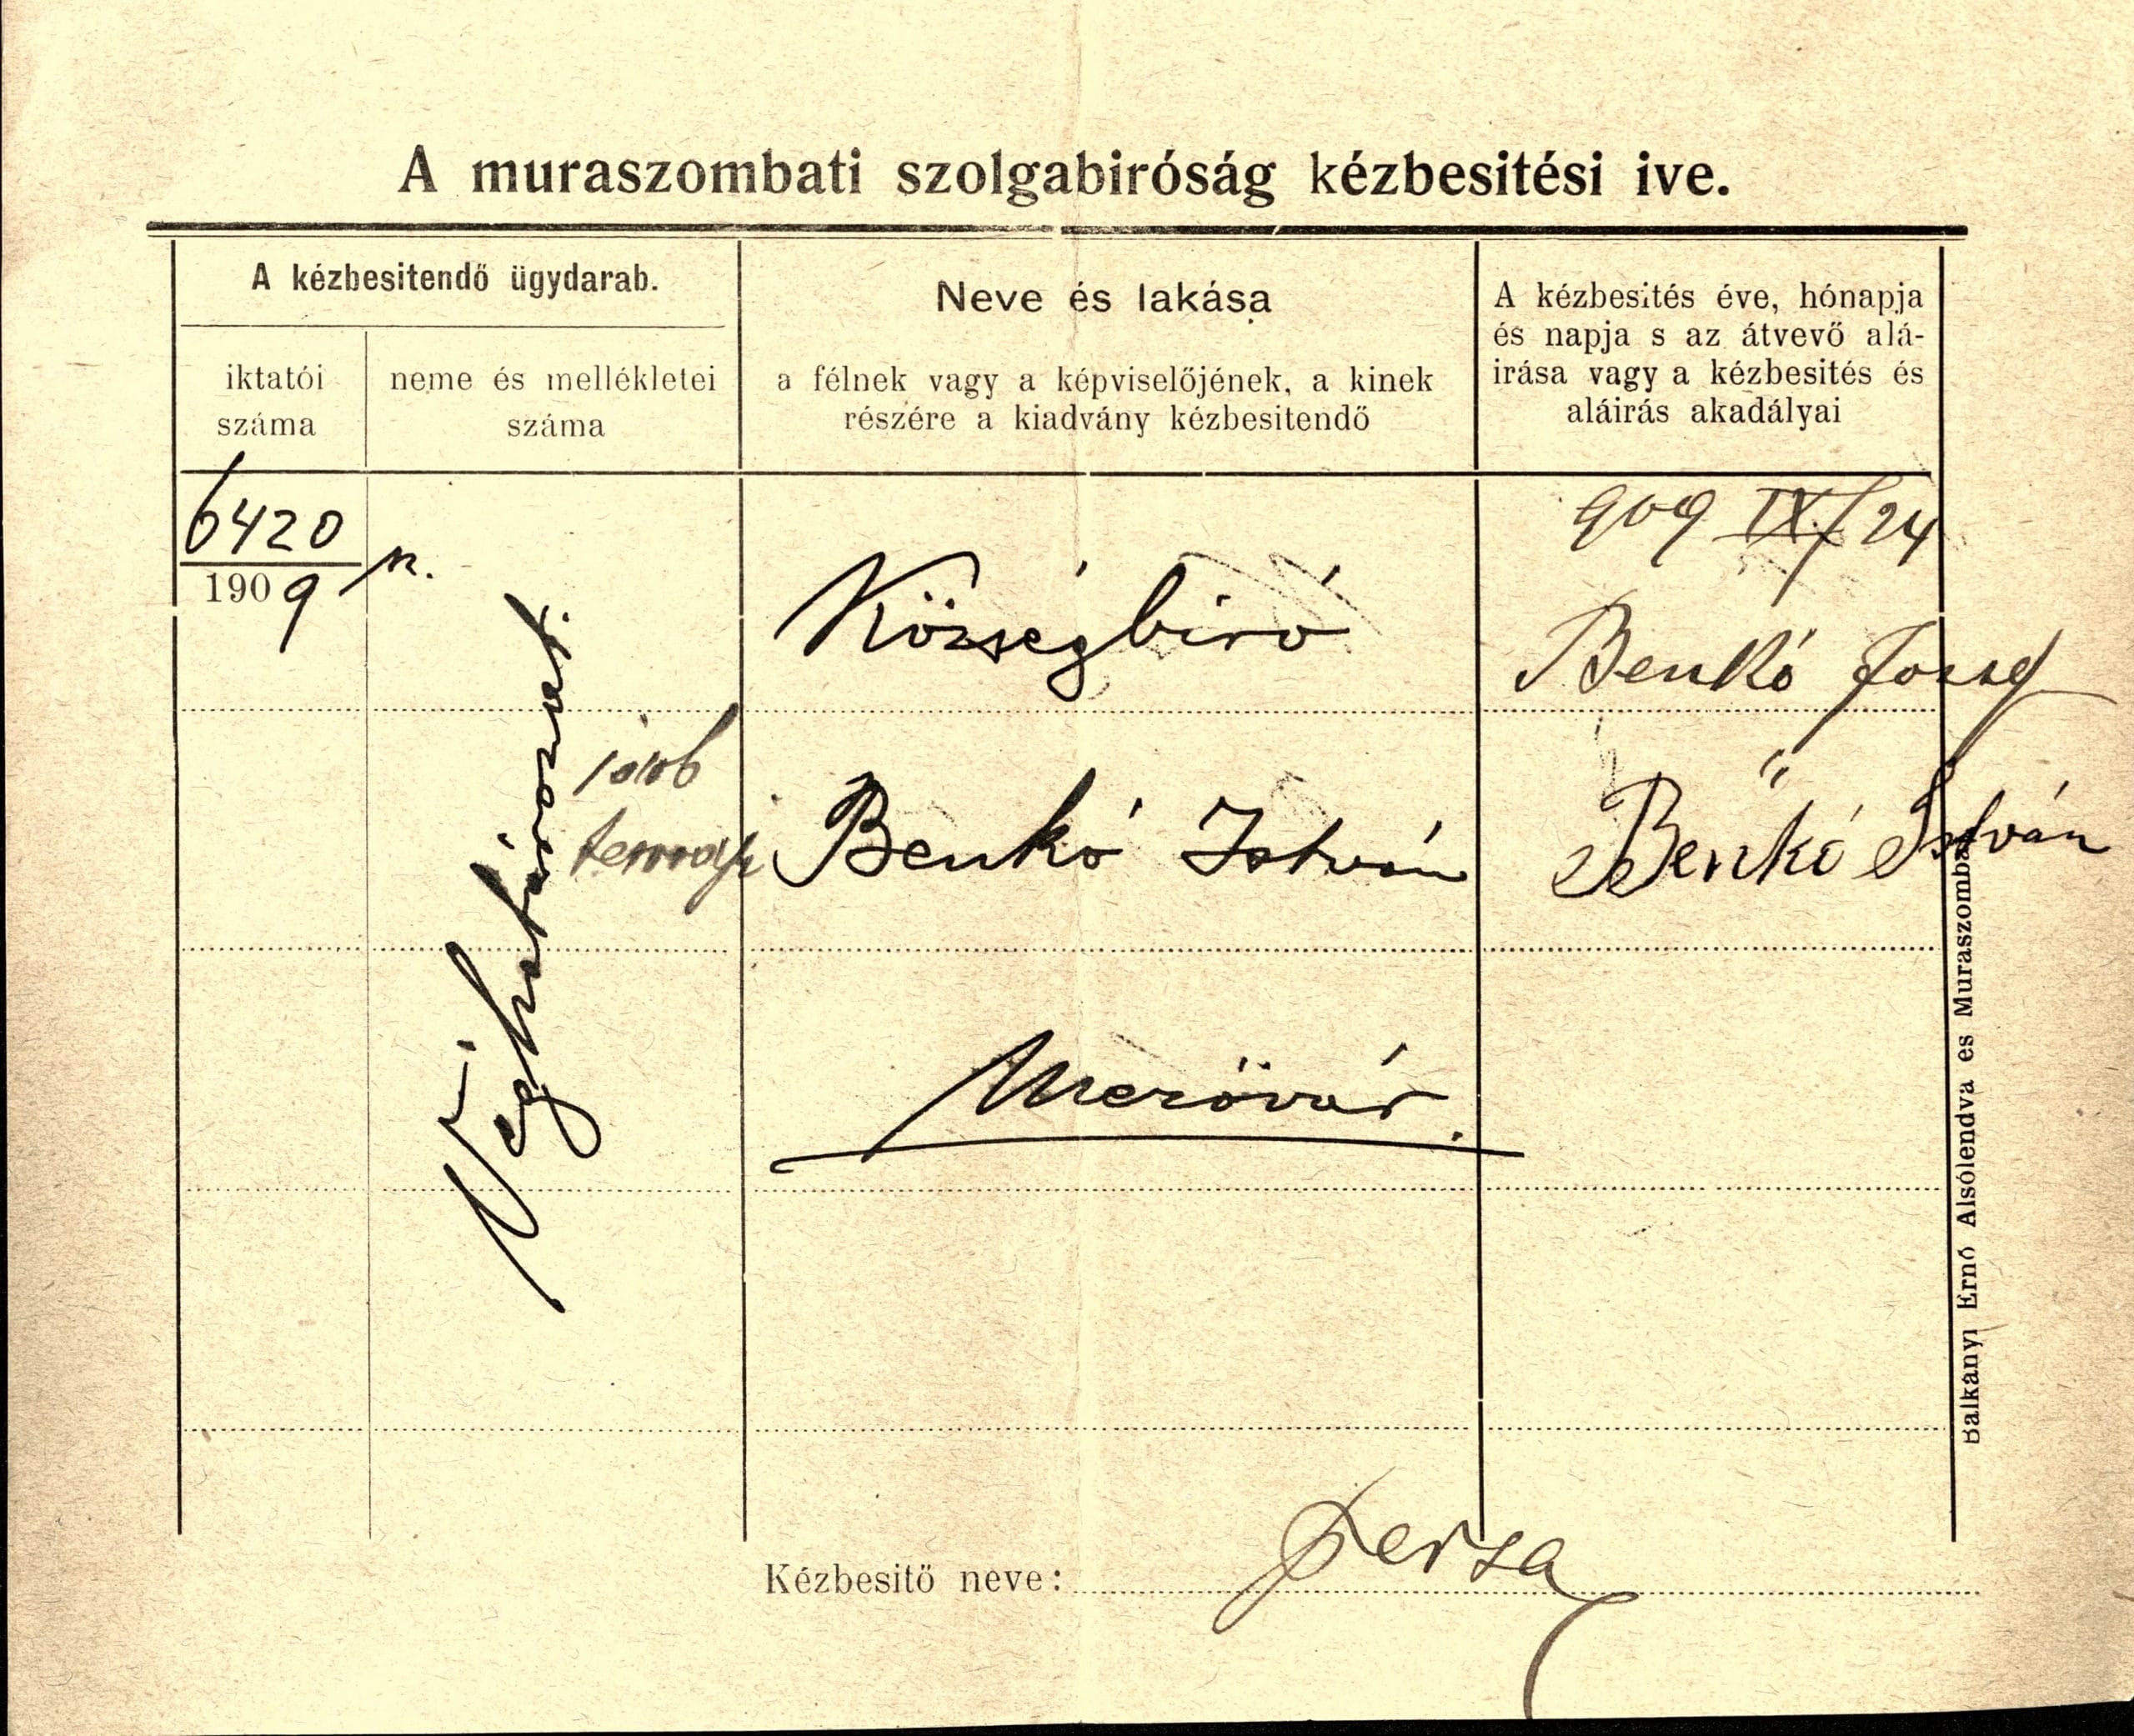 A muraszombati szolgabiróság kézbesitési ive.
A kézbesitendő ügydarab.
iktatói
száma
neme és mellékletei
száma
Neve és lakása
a félnek vagy a képviselőjének, a kinek
részére a kiadvány kézbesitendő
A kézbesités éve, hónapja
és napja s az átvevő alá-
irása vagy a kézbesités és
aláirás akadályai
6420
1909
Véghatározat.
Községbiró
Benkó István
Mezővár.
909 IX/24
Benkó József
"
Benkó István
Kézbesitő neve:
Balkányi Ernő Alsólendva és Muraszombat